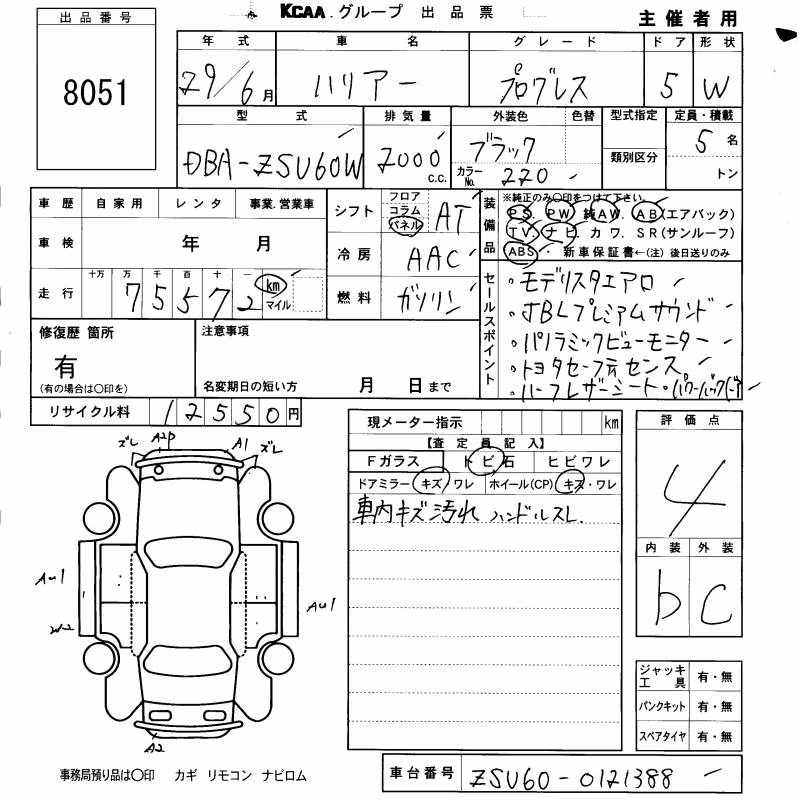 KCAA.グループ 出品票
主催者用
出品番号
8051
年式 車名 グレード ドア 形状
29/6月 ハリアー プログレス 5 W
型式 排気量 外装色 色替 型式指定 定員・積載
DBA-ZSU60W 2000 c.c. ブラック カラーNo. 220 類別区分 5名 トン
車歴 自家用 レンタ 事業.営業車
車検 年 月
走行 十万 万 千 百 十 一 75572 km マイル
シフト フロア コラム パネル AT
冷房 AAC
燃料 ガソリン
装備品 ※純正のみ○印をつけて下さい。
PS. PW 純AW. AB(エアバック)
TV. ナビ. カワ. SR(サンルーフ)
ABS・ 新車保証書←(注)後日送りのみ
セールスポイント
・モデリスタエアロ
・JBLプレミアムサウンド
・パノラミックビューモニター
・トヨタセーフティセンス
・ハーフレザーシート・パワーバックドア
修復歴 箇所 注意事項
有
(有の場合は○印を) 名変期日の短い方 月 日まで
リサイクル料 12550円
現メーター指示 km
【査定員記入】
Fガラス トビ石 ヒビワレ
ドアミラー キズ/ワレ ホイール(CP) キズ・ワレ
車内キズ汚れ ハンドルスレ
評価点
4
内装 外装
b C
ズレ A2P A1 ズレ
AU1
AU1
W2
A2
ジャッキ工具 有・無
パンクキット 有・無
スペアタイヤ 有・無
事務局預り品は○印 カギ リモコン ナビロム
車台番号 ZSU60-0121388